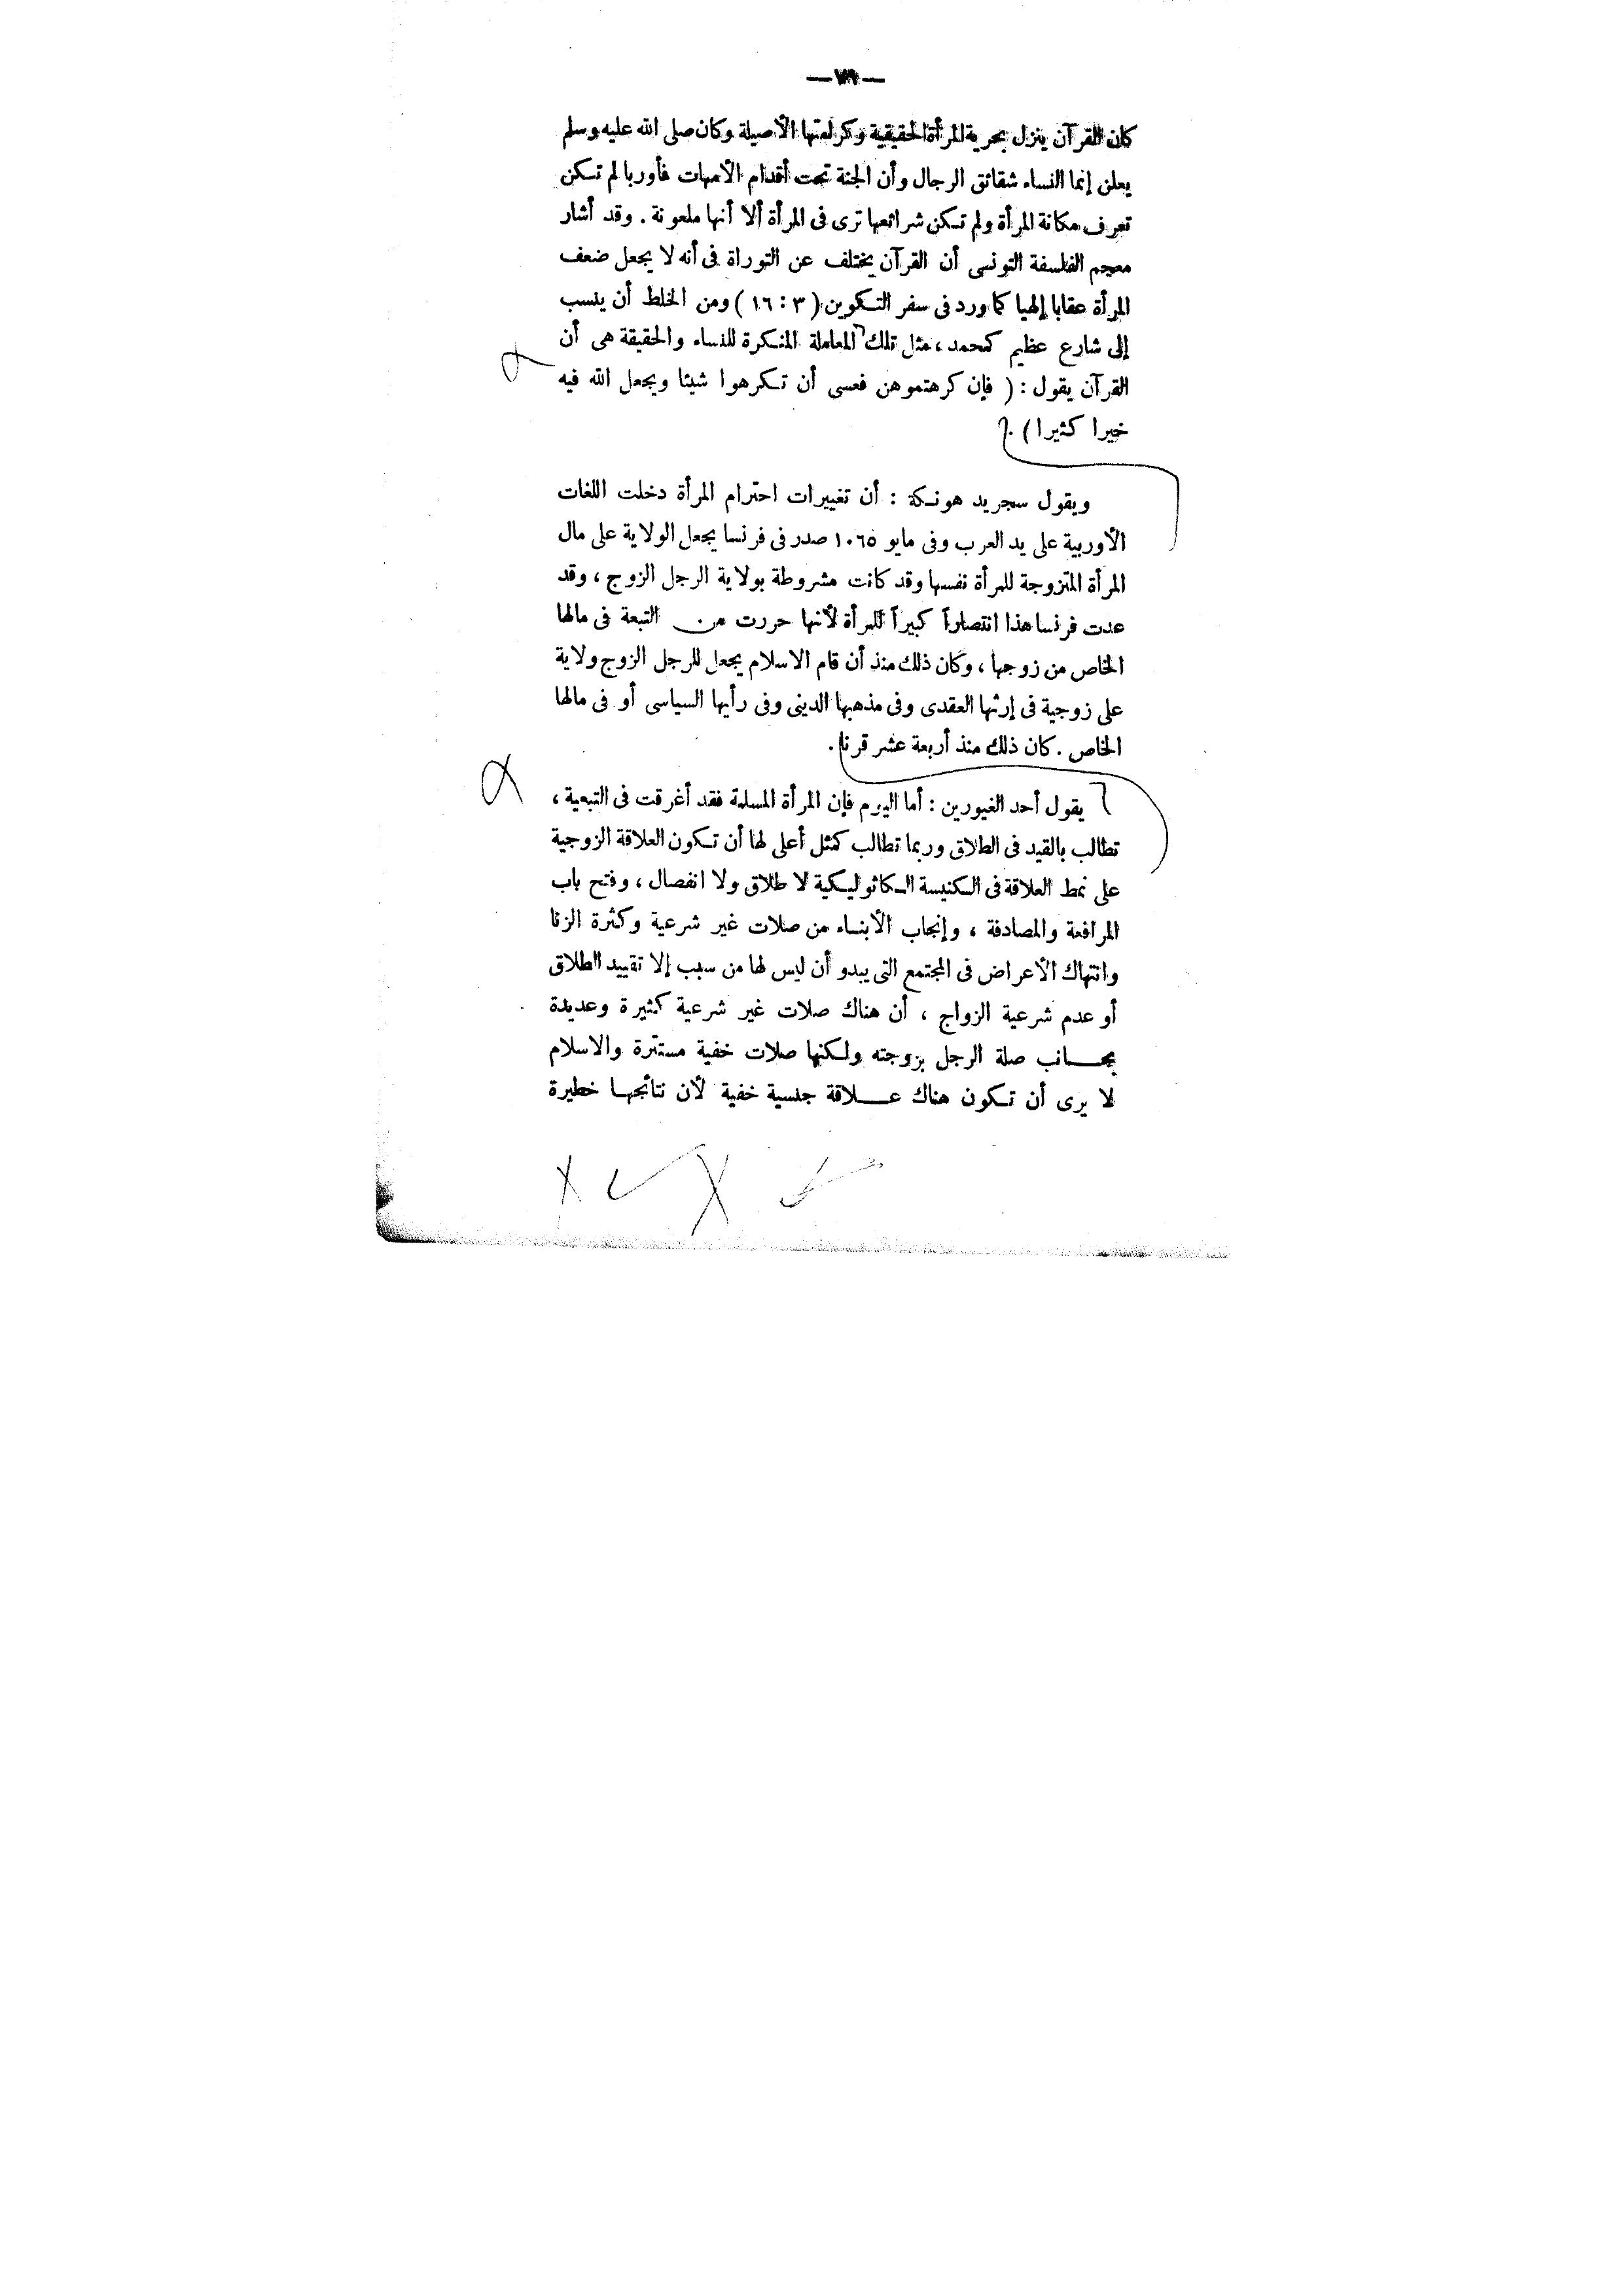 كان القرآن ينزل بحرية المرأة الحقيقية وكرامتها الأصيلة وكان صلى الله عليه وسلم
يعلن إنما النساء شقائق الرجال وأن الجنة تحت أقدام الأمهات فأوربا لم تكن
تعرف مكانة المرأة ولم تكن شرائعها ترى فى المرأة ألا أنها ملعونة . وقد أشار
معجم الفلسفة التونسى أن القرآن يختلف عن التوراة فى أنه لا يجعل ضعف
المرأة عقابا إلهيا كما ورد فى سفر التكوين ( ٣ : ١٦ ) ومن الخلط أن ينسب
إلى شارع عظيم كمحمد ، مثل تلك المعاملة المنكرة للنساء والحقيقة هى أن
القرآن يقول : ( فإن كرهتموهن فعسى أن تكرهوا شيئا ويجعل الله فيه
خيرا كثيرا ) .
ويقول سجريد هونكة : أن تغييرات احترام المرأة دخلت اللغات
الأوربية على يد العرب وفى مايو ١٠٦٥ صدر فى فرنسا يجعل الولاية على مال
المرأة المتزوجة للمرأة نفسها وقد كانت مشروطة بولاية الرجل الزوج ، وقد
عدت فرنسا هذا انتصاراً كبيراً للمرأة لأنها حررت من التبعة فى مالها
الخاص من زوجها ، وكان ذلك منذ أن قام الاسلام يجعل للرجل الزوج ولاية
على زوجية فى إرثها العقدى وفى مذهبها الدينى وفى رأيها السياسى أو فى مالها
الخاص . كان ذلك منذ أربعة عشر قرنا .
يقول أحد الغيورين : أما اليوم فإن المرأة المسلمة فقد أغرقت فى التبعية ،
تطالب بالقيد فى الطلاق وربما تطالب كمثل أعلى لها أن تكون العلاقة الزوجية
على نمط العلاقة فى الكنيسة الكاثوليكية لا طلاق ولا انفصال ، وفتح باب
المرافعة والمصادفة ، وإنجاب الأبناء من صلات غير شرعية وكثرة الزنا
وانتهاك الأعراض فى المجتمع التى يبدو أن ليس لها من سبب إلا تقييد الطلاق
أو عدم شرعية الزواج ، أن هناك صلات غير شرعية كثيرة وعديدة
بجانب صلة الرجل بزوجته ولكنها صلات خفية مستترة والاسلام
لا يرى أن تكون هناك علاقة جنسية خفية لأن نتائجها خطيرة